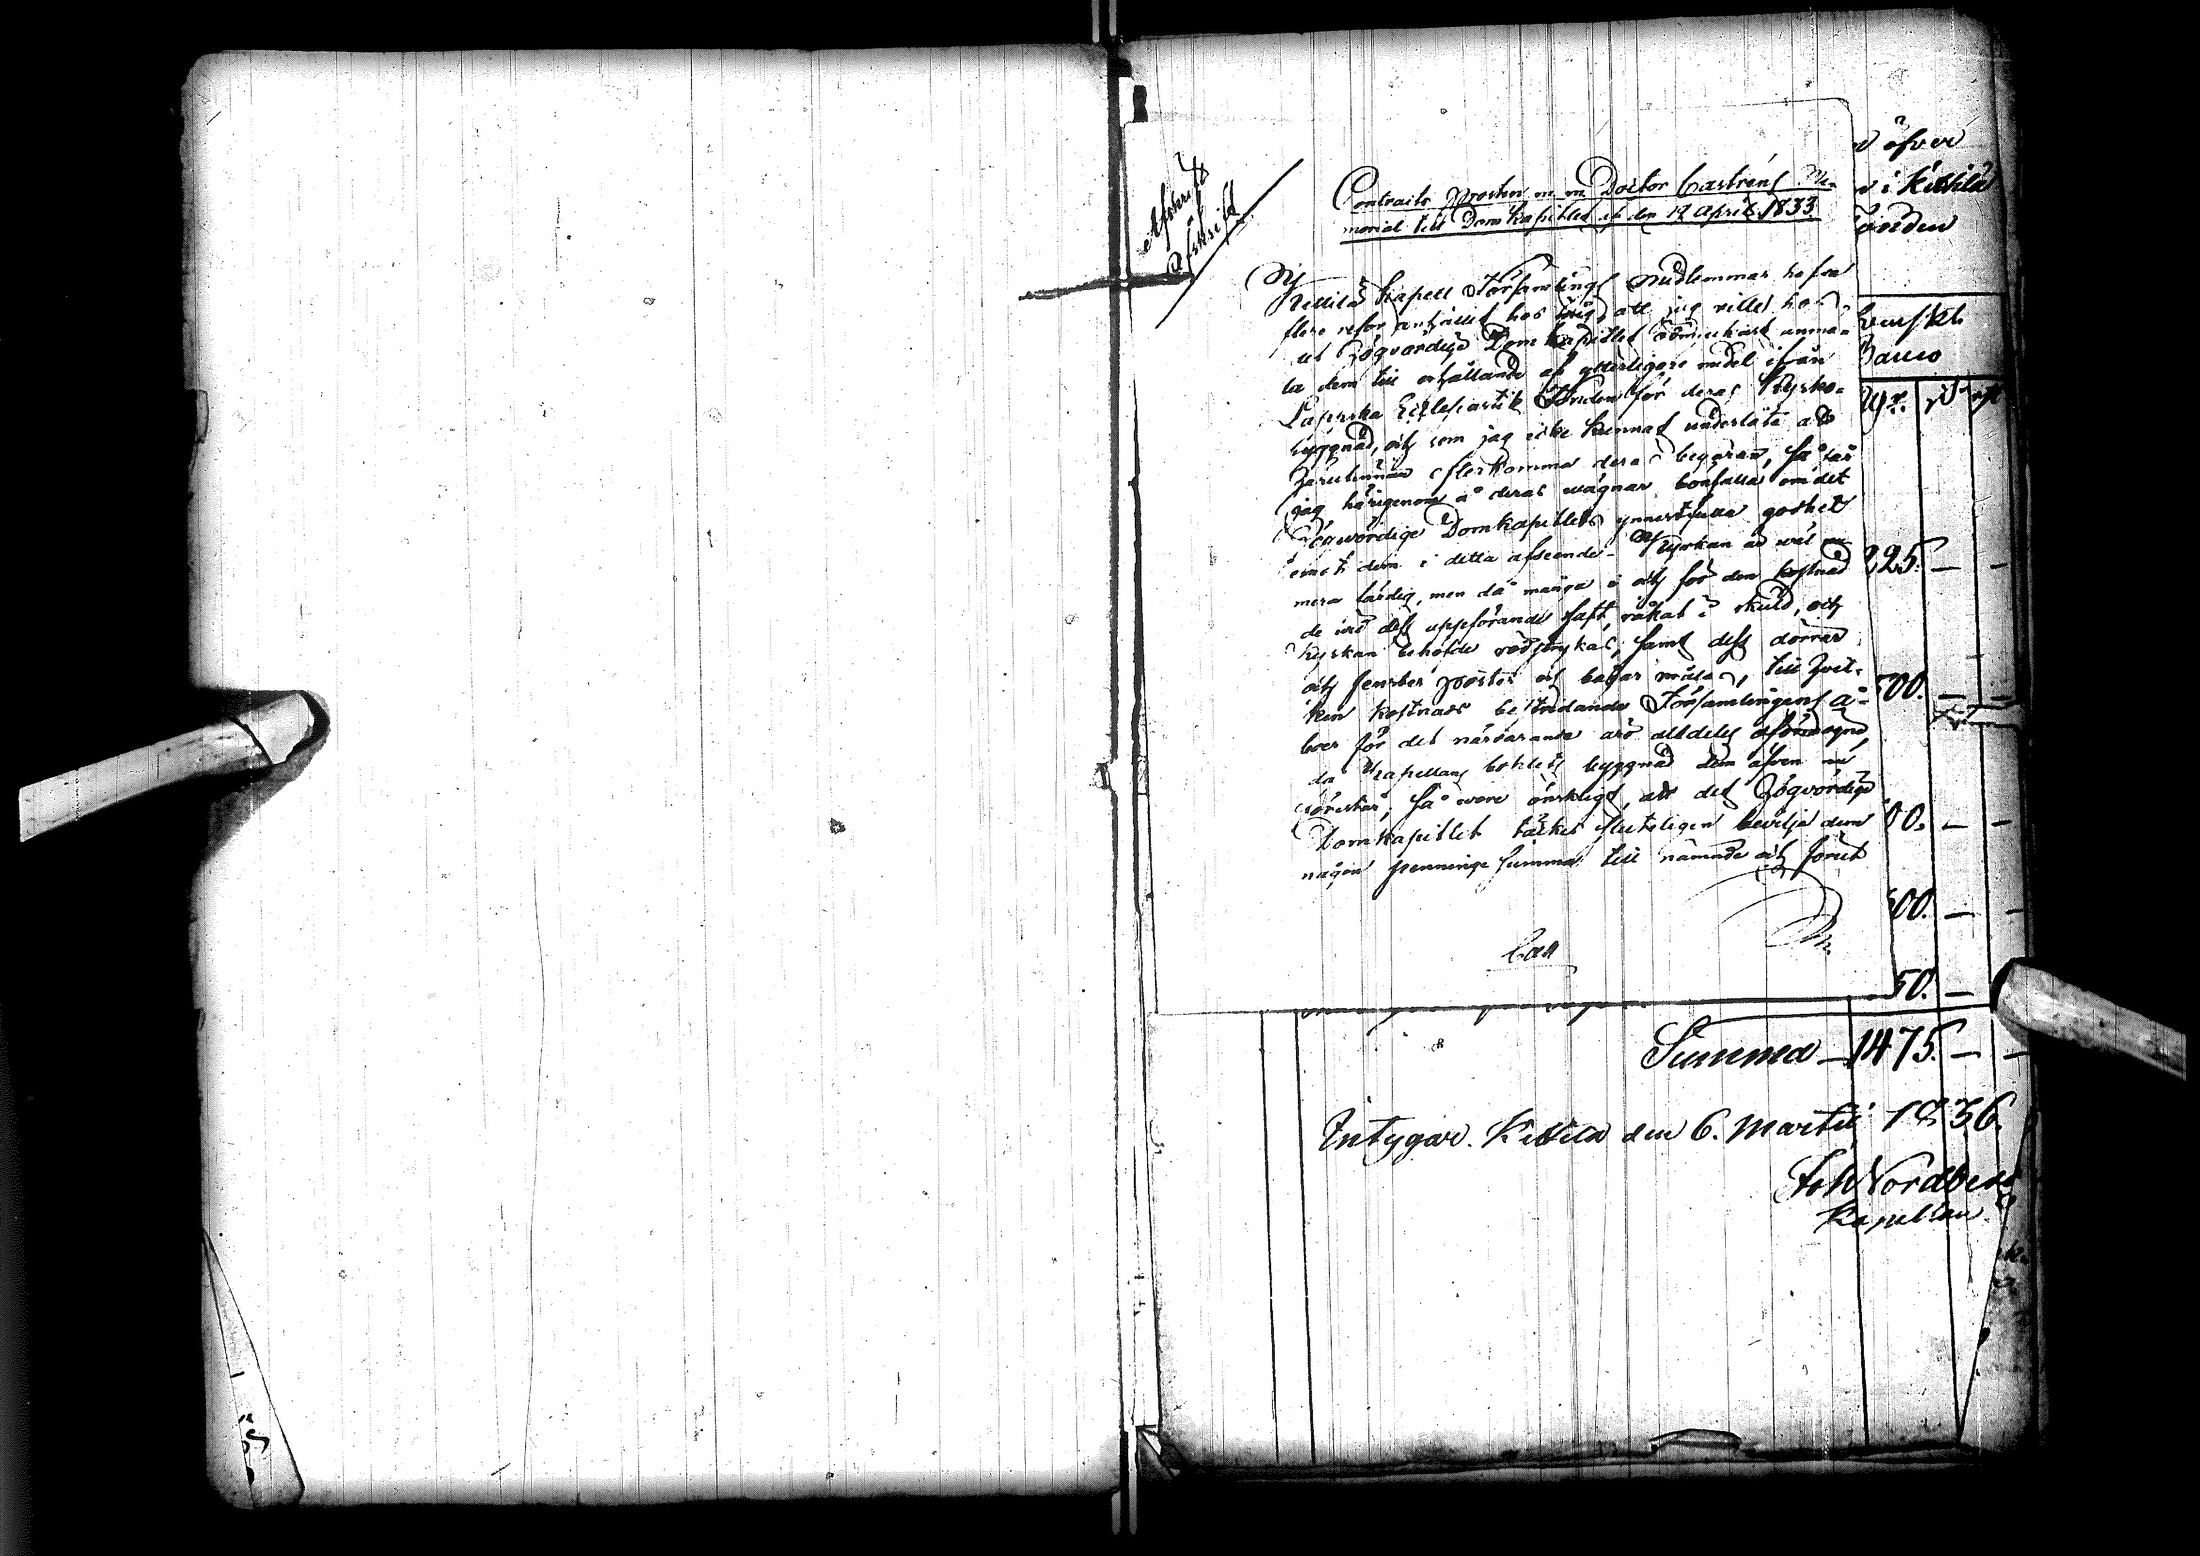 Afskrift
Contracts Prosten m. m. Doctor Castréns Me-
morial till Domkapitlet af den 12 April 1833
Kittilä Kapell Församlings Medlemmar hafva
flere resor anhållit hos mig, att jag ville hos
Högvördige Domkapitlet ödmjukast anmä-
la dem till erhållande af ytterligare medel ifrån
Lappska Ecclesiastik Fonden för deras Kyrko-
byggnad, och som jag icke kunnat underlåta att
häruti efterkomma deras begäran, så får
jag härigenom å deras vägnar bönfalla om det
Högvördige Domkapitlets ynnestfulla godhet
emot dem i detta afseende. Kyrkan är väl nu
mera färdig, men då många i och för den kostnad
de vid dess uppförande haft, råkat i skuld, och
Kyrkan behöfde rödstrykas, samt dess dörrar
och fenster poster och bågar målas, till hvil-
ken kostnads bestridande Församlingens å-
boer för det närvarande äro alldeles oförmögna,
då Kapellans bohlets byggnad dem äfven nu
förestår, så vore önskligt, att det Högvördige
Domkapitlet täcktes slutligen bevilja dem
någon penninge summa till nämnde och förut
Cas
öfver
i Kittilä
Banco
225. — —
00. — —
00. — —
00. — —
50. —
Summa — 1475. — —
Intygar. Kittilä den 6. Martii 1836.
Joh Nordberg
Kapellan.